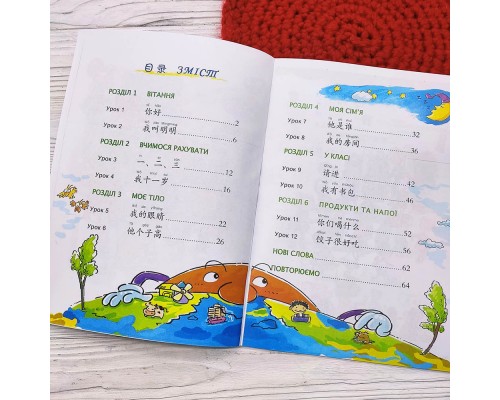 目录 ЗМІСТ
РОЗДІЛ 1 ВІТАННЯ
Урок 1 你好 2
Урок 2 我叫明明 6
РОЗДІЛ 2 ВЧИМОСЯ РАХУВАТИ
Урок 3 一、二、三 12
Урок 4 我十一岁 16
РОЗДІЛ 3 МОЄ ТІЛО
Урок 5 我的眼睛 22
Урок 6 他个子高 26
РОЗДІЛ 4 МОЯ СІМ'Я
Урок 7 她是谁 32
Урок 8 我的房间 36
РОЗДІЛ 5 У КЛАСІ
Урок 9 请进 42
Урок 10 我有书包 46
РОЗДІЛ 6 ПРОДУКТИ ТА НАПОЇ
Урок 11 你们喝什么 52
Урок 12 饺子很好吃 56
НОВІ СЛОВА 62
ПОВТОРЮЄМО 64